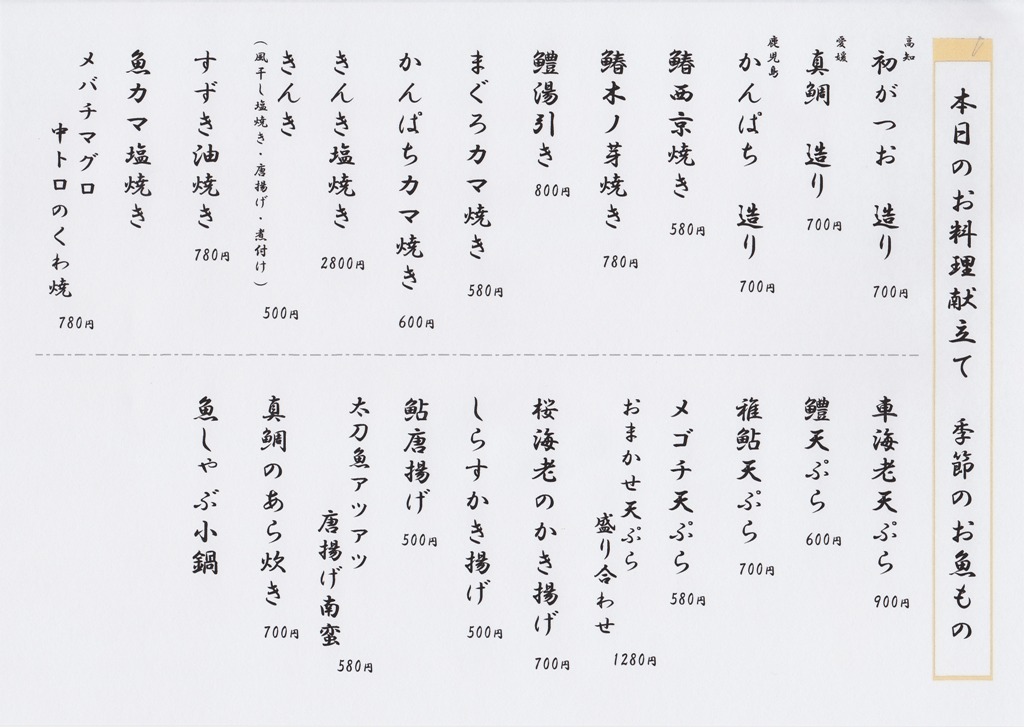 本日のお料理献立て　季節のお魚もの
高知
初がつお　造り
700円
愛媛
真鯛　造り
700円
鹿児島
かんぱち　造り
700円
鰆西京焼き
580円
鰆木ノ芽焼き
780円
鱧湯引き
800円
まぐろカマ焼き
580円
かんぱちカマ焼き
600円
きんき塩焼き
2800円
きんき
（風干し塩焼き・唐揚げ・煮付け）
500円
すずき油焼き
780円
魚カマ塩焼き
メバチマグロ
中トロのくわ焼
780円
車海老天ぷら
900円
鱧天ぷら
600円
稚鮎天ぷら
700円
メゴチ天ぷら
580円
おまかせ天ぷら
盛り合わせ
1280円
桜海老のかき揚げ
700円
しらすかき揚げ
500円
鮎唐揚げ
500円
太刀魚アツアツ
唐揚げ南蛮
580円
真鯛のあら炊き
700円
魚しゃぶ小鍋